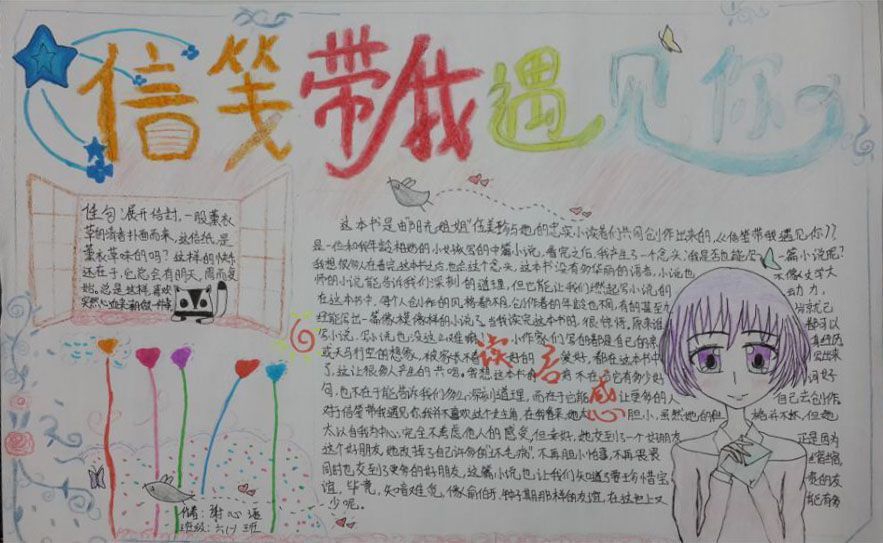 信笺带我遇见你
佳句：展开信封，一股薰衣
草的清香扑面而来，这信纸是
薰衣草味的吗？这样的快乐
还在于，它总会有明天，周而复
始。总是这样，喜欢
突然心血来潮做一件事
这本书是由“阳光姐姐”伍美珍与她的忠实小读者们共同创作出来的，《信笺带我遇见你》
是一位和我年龄相当的小女孩写的中篇小说，看完之后，我产生了一个念头：我是否也能写一篇小说呢？
我想很多人在看完这本书之后也会这个念头，这本书没有多华丽的语言，小说也不像文学大
师的小说能告诉我们深刻的道理，但它能让我们燃起写小说的动力，
在这本书中，每个人创作的风格都不同，创作者的年龄也不同，有的甚至
经能写出一篇像模像样的小说了。当我读完这本书时，很惊讶，原来谁都可以
写小说，写小说也没这么难嘛。小作家们写的都是自己的亲
或天马行空的想象，
了，这让很多人产生的共鸣。我想这本书的 不在 它有多少好词好
句，也不在于能告诉我们多么深刻道理，而在于它能 让更多的人自己去创作。
对于信笺带我遇见你，我并不喜欢这个主角，在我看来，她太 胆小，虽然她的 并不坏，但她
太以自我为中心，完全不考虑他人的感受，但幸好，她交到了一个好朋友，正是因为
这个好朋友，她改掉了自己许多的坏毛病，不再胆小怕事，不再畏畏缩缩，
同时也交到了更多的好朋友，这篇小说也让我们知道了要珍惜宝贵的友
谊，毕竟，知音难觅，像俞伯牙、钟子期那样的友谊，在这世上又能有多
少呢。
读
后
感
作者：谢心语
班级：六(1)班